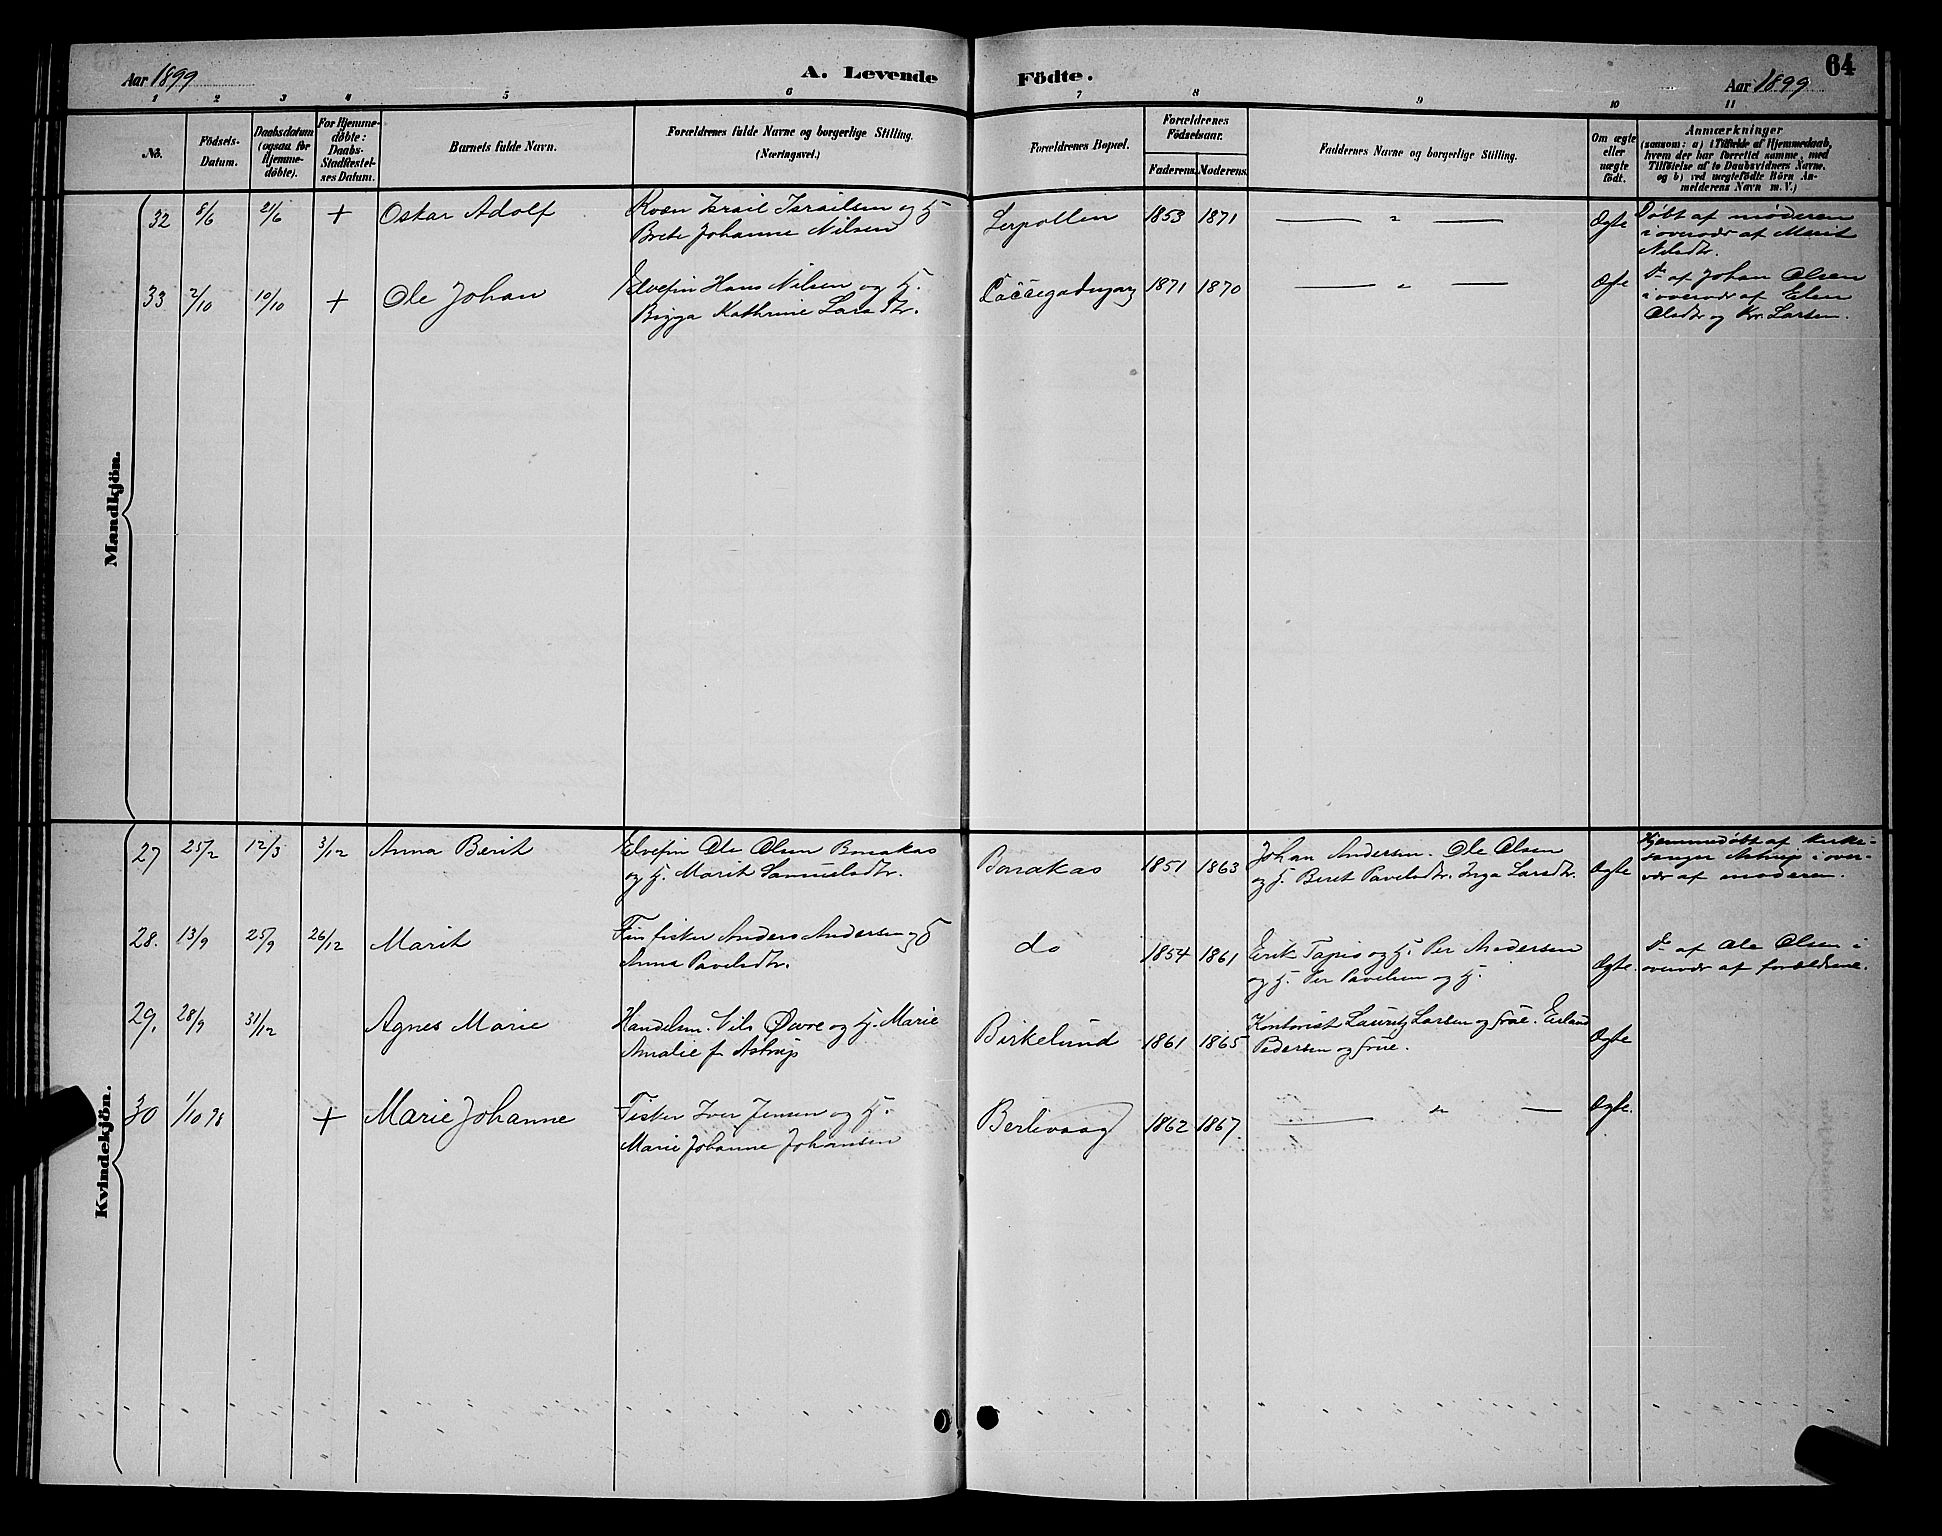 Aar 1899
A. Levende
Födte.
Aar 1899
64
1 2 3 4 5 6 7 8 9 10 11
No.
Födsels-
Datum.
Daabsdatum
(ogsaa for
Hjemme-
döbte).
For Hjemme-
döbte:
Daabs-
Stadfæstel-
ses Datum.
Barnets fulde Navn.
Forældrenes fulde Navne og borgerlige Stilling.
(Næringsvei.)
Forældrenes Bopæl.
Forældrenes
Födselsaar.
Faderens. Moderens.
Faddernes Navne og borgerlige Stilling.
Om ægte
eller
uægte
födt.
Anmærkninger
(saasom: a) i Tilfælde af Hjemmedaab,
hvem der har forrettet samme, med
Tilföielse af to Daabsvidners Navne,
og b) ved uægtefödte Börn An-
melderens Navn m. V.)
Mandkjön.
32 8/6 21/6 + Oskar Adolf
Kvæn Israil Israilsen og H
Brete Johanne Nilsen
Lerpollen 1853 1871 — " — Ægte
Døbt af moderen
i overvær af Marit
Nilsdtr.
33 2/10 10/10 + Ole Johan
Elvefin Hans Nilsen og H.
Bigga Kathrine Larsdtr.
1871 1870 — " — Ægte
Do af Johan Olsen
i overvær af Elen
Olsdtr og Kr. Larsen.
Kvindekjön.
27 25/2 12/3 3/12 Anna Berit
Elvefin Ole Olsen Bonakas
og H. Marit Samuelsdtr.
Bonakas 1851 1863
Johan Andersen. Ole Olsen
og H. Beret Pavelsdtr. Inga Larsdtr.
Ægte
Hjemmedøbt af kirke-
sanger Astrup i over-
vær af moderen.
28. 13/9 25/9 26/12 Marit
Fin fisker Anders Andersen og H
Anna Pavelsdtr.
do 1854 1861
Erik Tapio og H. Per Andersen
og H. Per Pavelsen og H.
Ægte.
Do af Ole Olsen i
overvær af forældrene.
29. 28/9 31/12 Agnes Marie
Handelsm. Nils Øwre og H. Marie
Amalie f. Astrup
Birkelund 1861 1865
Kontorist Lauritz Larsen og frue. Erland
Pedersen og frue.
Ægte
30 1/10 98 + Marie Johanne
Fisker Iver Jensen og H.
Marie Johanne Johansen
Berlevaag 1862 1867. — " — Ægte.